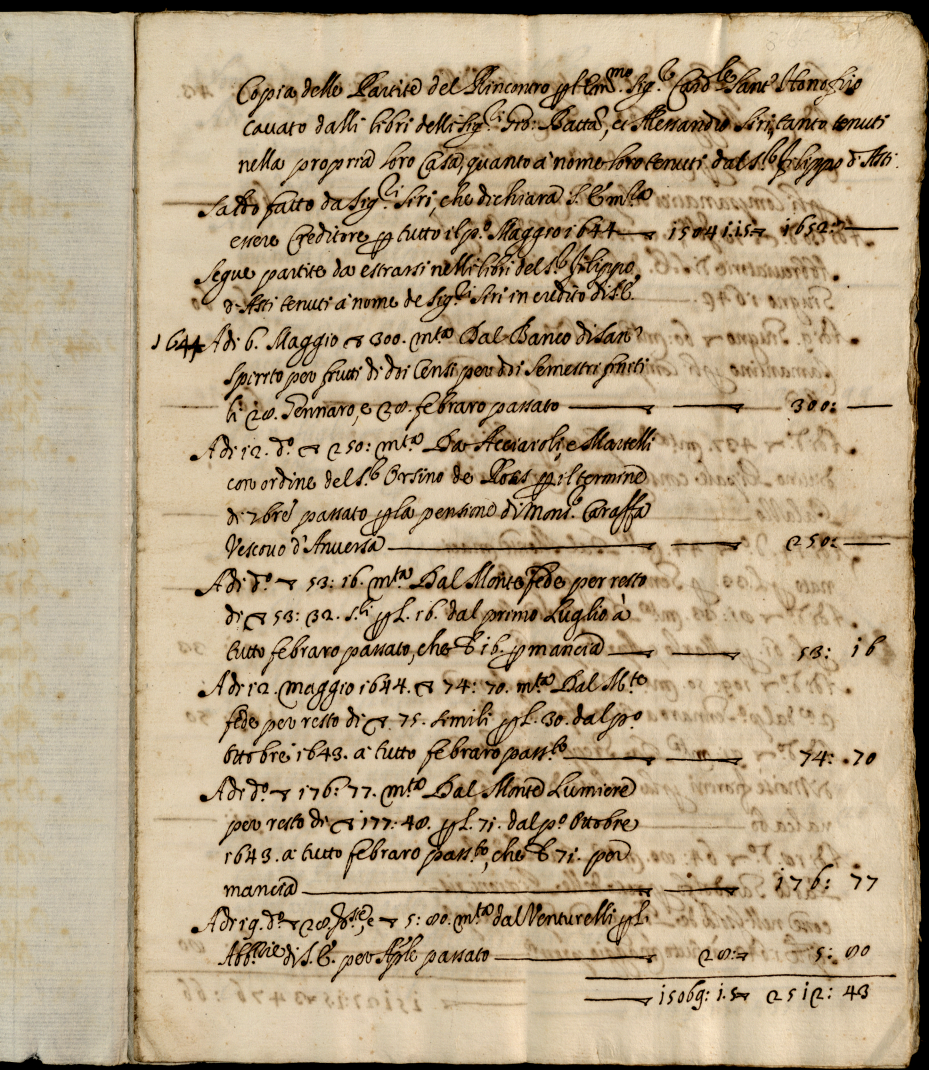 Copia delle Partite del Rincontro p l'Em.mo Sig.re Card.le Sant'Honofrio
cavato dalli libri delli Sig.ri Gio: Batta, et Alessandro Siri, tanto tenuti
nella propria loro Casa, quanto à nome loro tenuti dal S.r Filippo d'Asti
Saldo fatto da Sig.ri Siri, che dichiara S. E. m.ta
essere Creditore p tutto il p.o Maggio 1644 15041:15 1652:
Segue partite da estrarsi nelli libri del S.r Filippo
d'Asti tenuti à nome de Sig.ri Siri in credito di S.E.
1644 Adi 6. Maggio 300. m.ta Dal Banco di San
Spirito per frutti di doi Censi per doi Semestri finiti
li 28. Gennaro, e 28. febraro passato 300:
Adi 12. d.o 250: m.ta Da Acciaroli, e Martelli
con ordine del S.r Orsino de Rosis p il termine
di 7bre passato p la pensione di Mons.r Caraffa
Vescovo d'Anversa 250:
Adi d.o 53: 16. m.ta Dal Monte fede per resto
di 53: 32. s.li p L. 16. dal primo Luglio à
tutto febraro passato, che 16. p mancia 53: 16
Adi 12. maggio 1644. 74: 70. m.ta Dal M.te
fede per resto di 75. simili p L. 30. dal p.o
Ottobre 1643. à tutto febraro pass.to 74: 70
Adi d.o 176: 77. m.ta Dal Monte Lumiere
per resto di 177: 48. p L. 71. dal p.o Ottobre
1643. à tutto febraro pass.to, che 71. per
mancia 176: 77
Adi 19. d.o 28, e 5: 80. m.ta dal Venturelli p l'
Abb.tie di S.E. per Aple passato 28: 5: 80
15069: 15 2512: 43